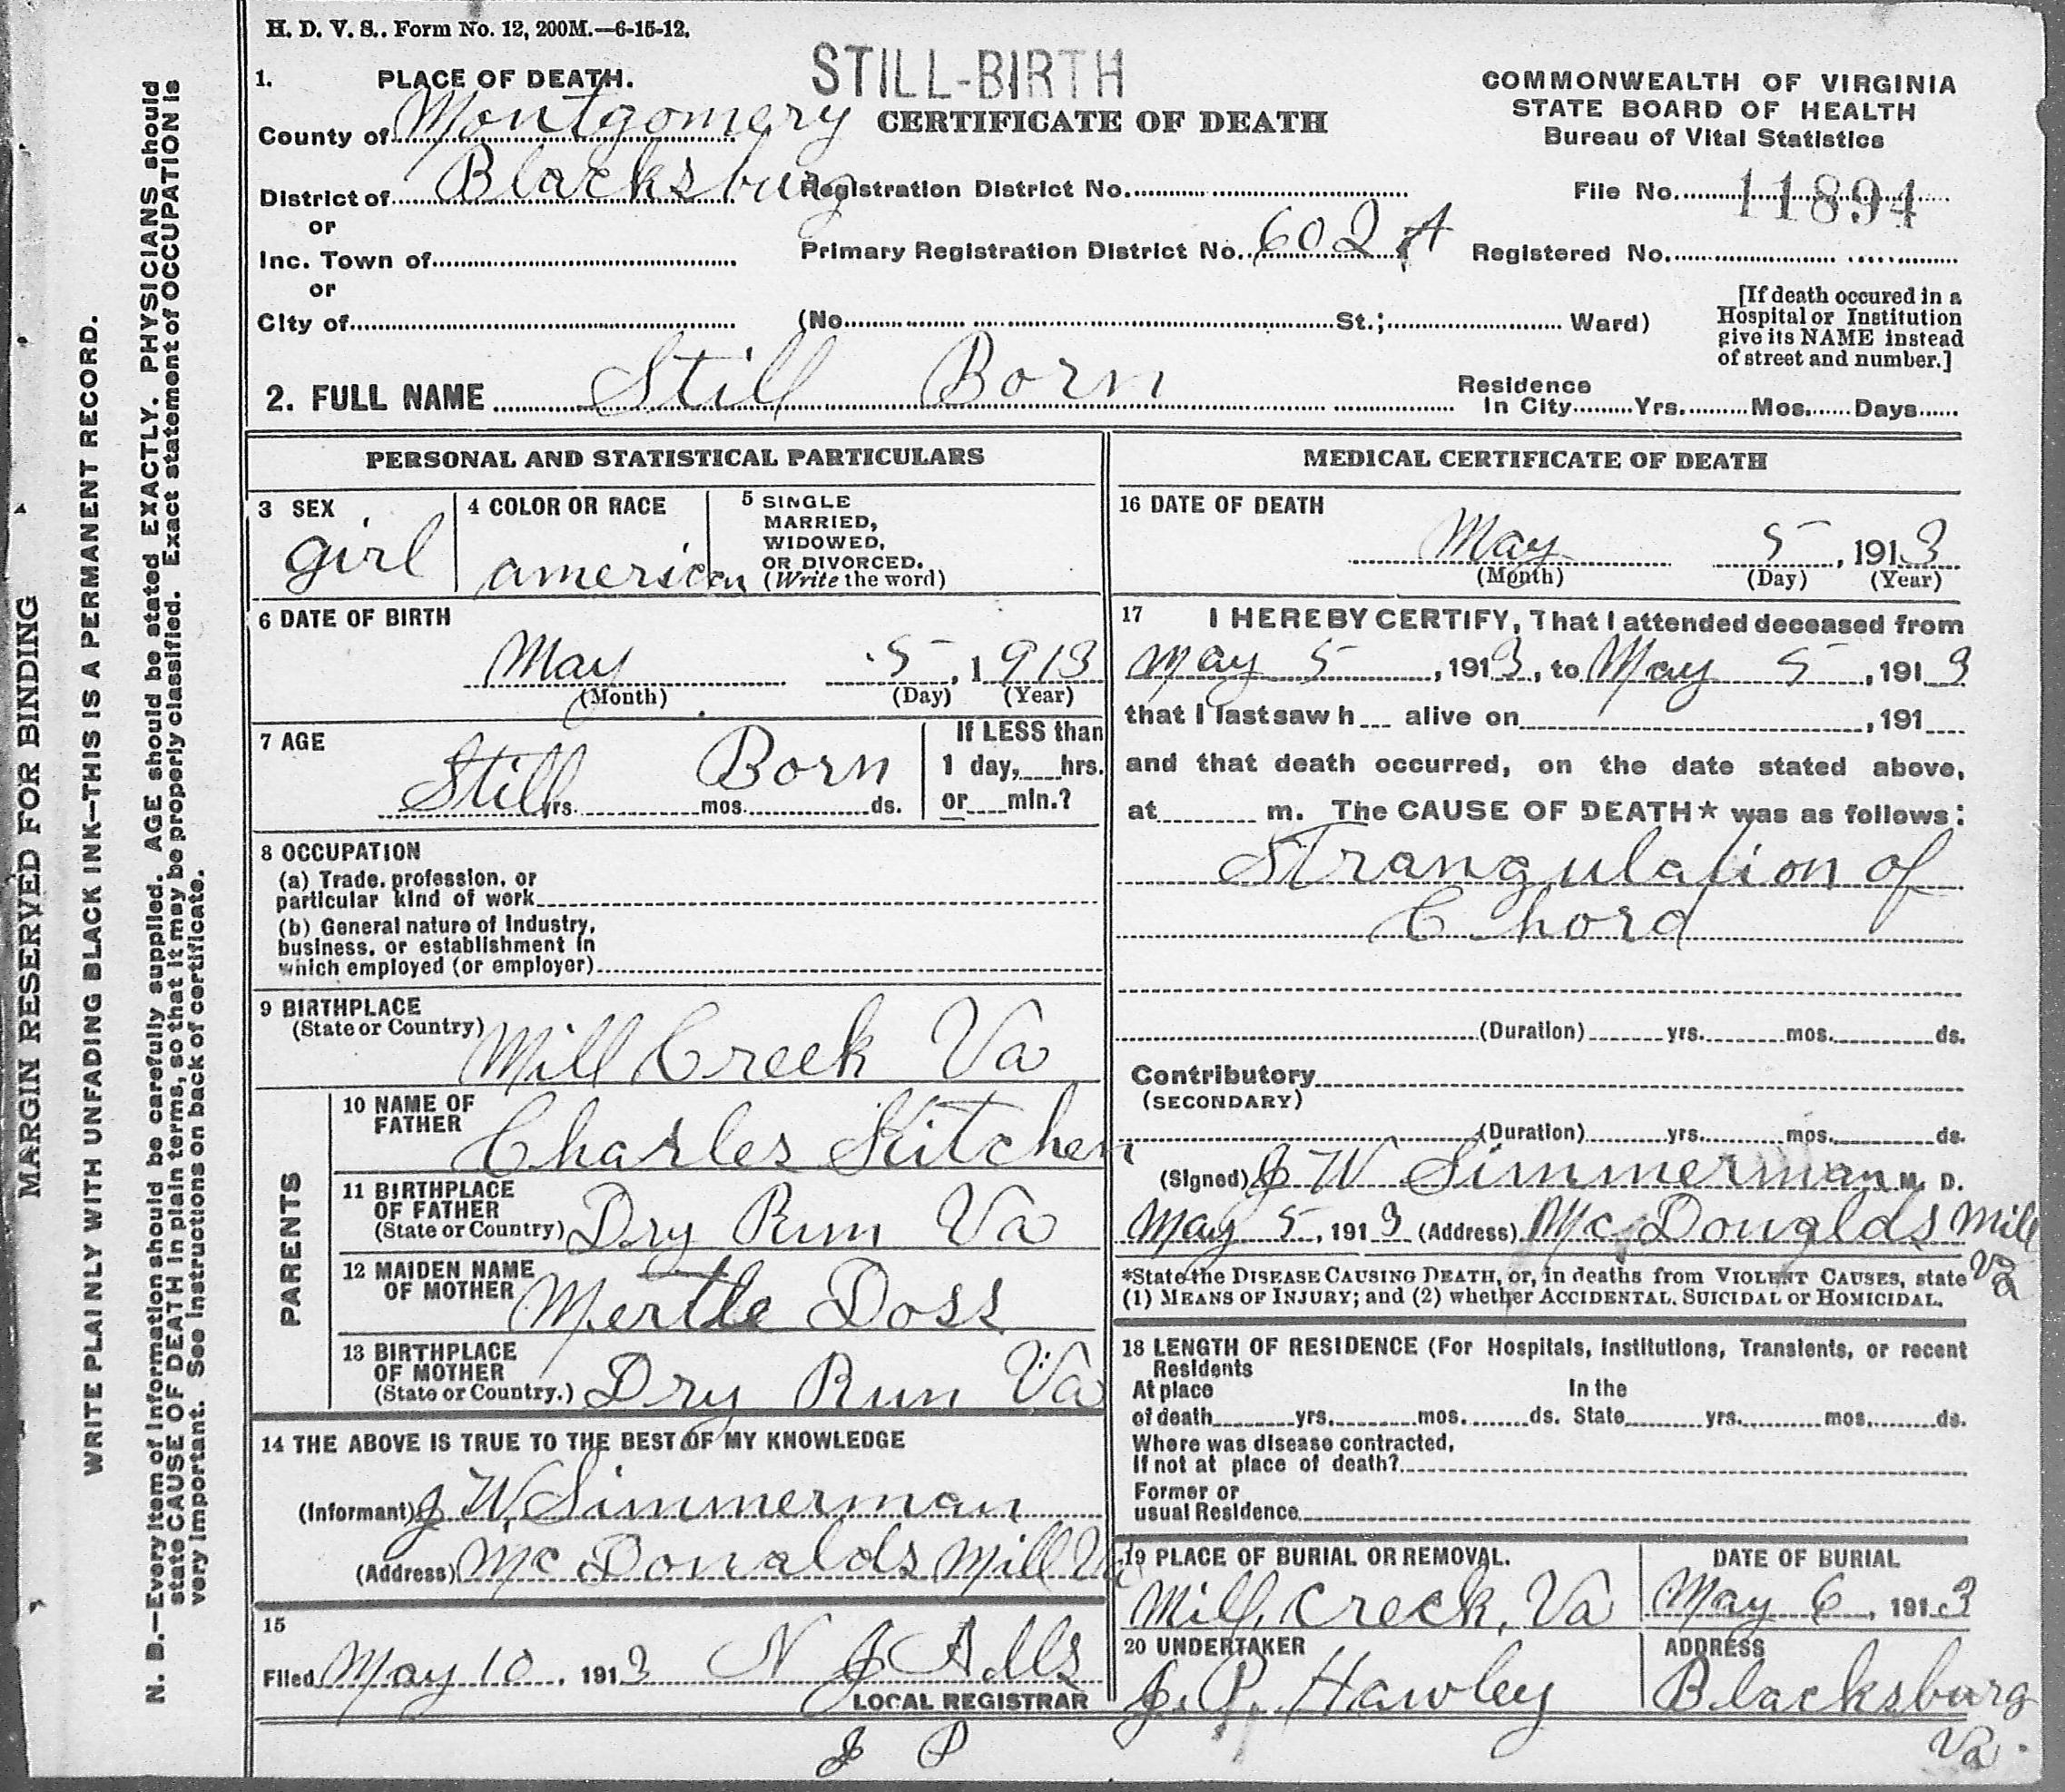 H. D. V. S.. Form No. 12, 200M.—6-15-12.
STILL-BIRTH
CERTIFICATE OF DEATH
COMMONWEALTH OF VIRGINIA
STATE BOARD OF HEALTH
Bureau of Vital Statistics
1. PLACE OF DEATH.
County of Montgomery
District of Blacksburg
Registration District No.
File No. 11894
or
Inc. Town of
Primary Registration District No. 602 A
Registered No.
or
City of
(No. St.; Ward)
[If death occured in a
Hospital or Institution
give its NAME instead
of street and number.]
2. FULL NAME Still Born
Residence
In City Yrs. Mos. Days
PERSONAL AND STATISTICAL PARTICULARS
3 SEX
girl
4 COLOR OR RACE
american
5 SINGLE
MARRIED,
WIDOWED,
OR DIVORCED.
(Write the word)
6 DATE OF BIRTH
May 5, 1913
(Month) (Day) (Year)
7 AGE
Still Born
yrs. mos. ds.
If LESS than
1 day, hrs.
or min.?
8 OCCUPATION
(a) Trade, profession, or
particular kind of work
(b) General nature of Industry,
business, or establishment in
which employed (or employer)
9 BIRTHPLACE
(State or Country) Mill Creek Va
PARENTS
10 NAME OF
FATHER Charles Kitchen
11 BIRTHPLACE
OF FATHER
(State or Country) Dry Run Va
12 MAIDEN NAME
OF MOTHER Mertle Doss
13 BIRTHPLACE
OF MOTHER
(State or Country.) Dry Run Va
14 THE ABOVE IS TRUE TO THE BEST OF MY KNOWLEDGE
(Informant) J W Simmerman
(Address) McDonalds Mill Va
15
Filed May 10, 1913 N J
LOCAL REGISTRAR
J P
MEDICAL CERTIFICATE OF DEATH
16 DATE OF DEATH
May 5, 1913
(Month) (Day) (Year)
17 I HEREBY CERTIFY, That I attended deceased from
May 5, 1913, to May 5, 1913
that I last saw h alive on , 191
and that death occurred, on the date stated above,
at m. The CAUSE OF DEATH* was as follows:
Strangulation of
Chord
(Duration) yrs. mos. ds.
Contributory
(SECONDARY)
(Duration) yrs. mos. ds.
(Signed) J W Simmerman M. D.
May 5, 1913 (Address) McDonalds Mill
Va
*State the DISEASE CAUSING DEATH, or, in deaths from VIOLENT CAUSES, state
(1) MEANS OF INJURY; and (2) whether ACCIDENTAL, SUICIDAL or HOMICIDAL.
18 LENGTH OF RESIDENCE (For Hospitals, Institutions, Transients, or recent
Residents
At place In the
of death yrs. mos. ds. State yrs. mos. ds.
Where was disease contracted,
If not at place of death?
Former or
usual Residence
19 PLACE OF BURIAL OR REMOVAL.
Mill Creek, Va
DATE OF BURIAL
May 6, 1913
20 UNDERTAKER
J. P. Hawley
ADDRESS
Blacksburg
Va.
MARGIN RESERVED FOR BINDING
WRITE PLAINLY WITH UNFADING BLACK INK—THIS IS A PERMANENT RECORD.
N. B.—Every item of information should be carefully supplied. AGE should be stated EXACTLY. PHYSICIANS should
state CAUSE OF DEATH in plain terms, so that it may be properly classified. Exact statement of OCCUPATION is
very important. See instructions on back of certificate.